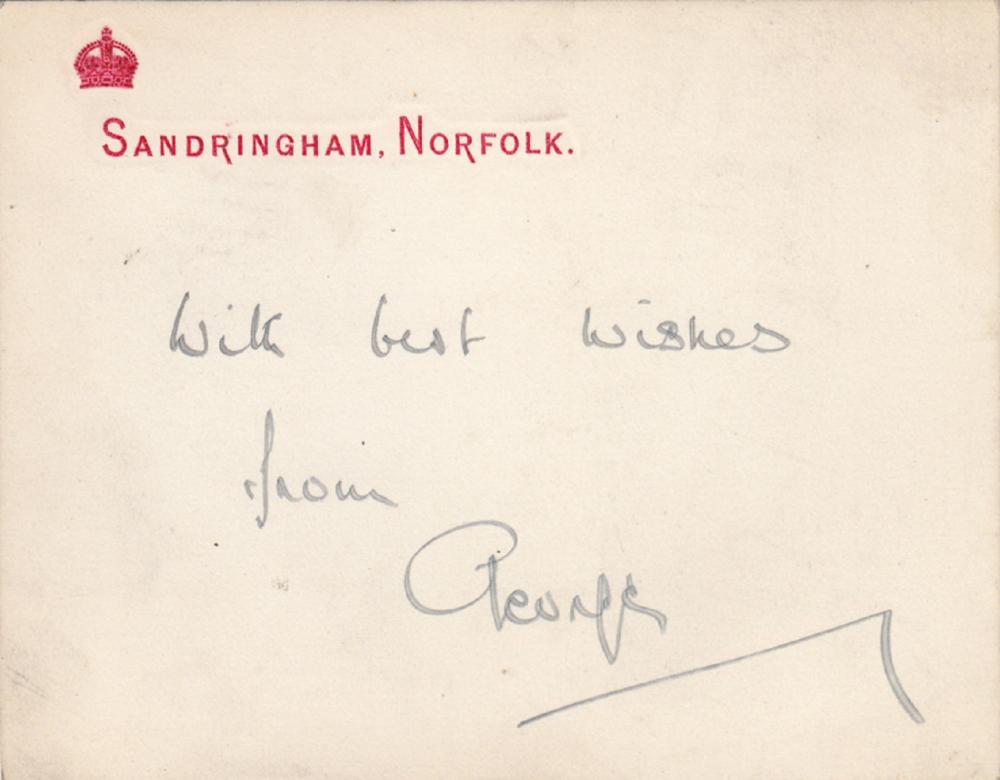 SANDRINGHAM, NORFOLK.
With best wishes
from
George